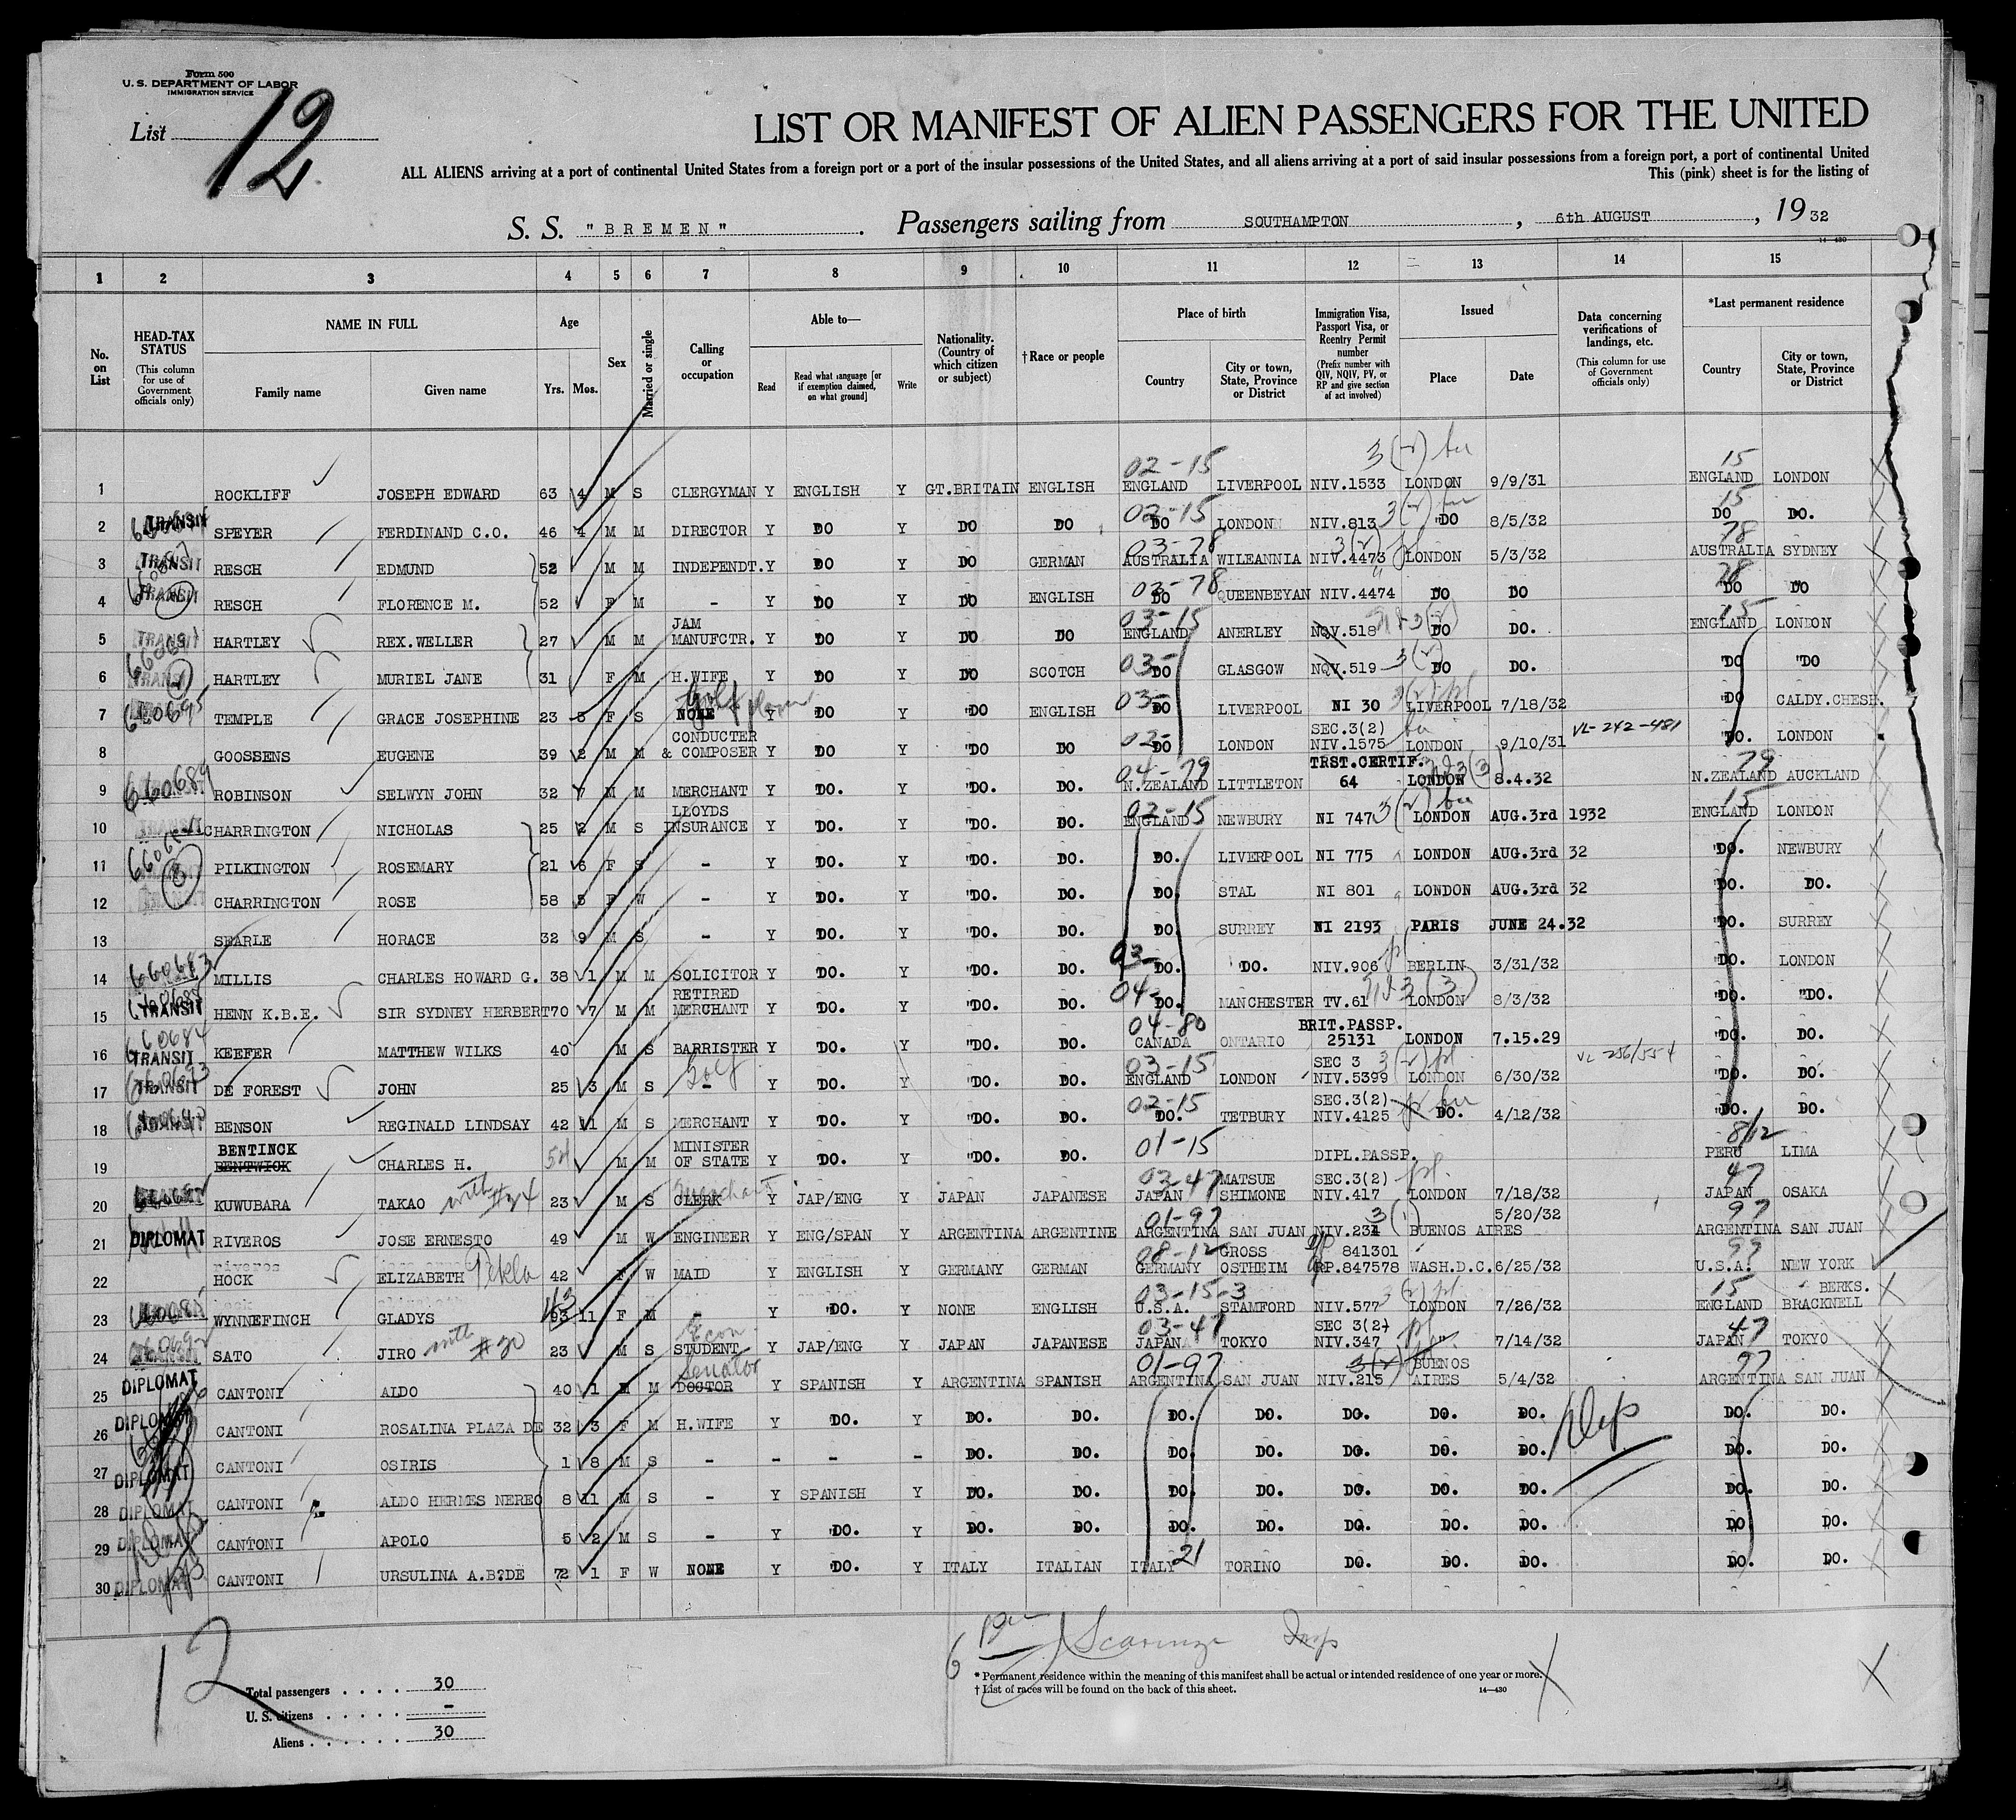 Form 500
U. S. DEPARTMENT OF LABOR
IMMIGRATION SERVICE
List 12
LIST OR MANIFEST OF ALIEN PASSENGERS FOR THE UNITED
ALL ALIENS arriving at a port of continental United States from a foreign port or a port of the insular possessions of the United States, and all aliens arriving at a port of said insular possessions from a foreign port, a port of continental United
This (pink) sheet is for the listing of
S. S. "BREMEN" . Passengers sailing from SOUTHAMPTON , 6th AUGUST , 19 32
14-430
1 2 3 4 5 6 7 8 9 10 11 12 13 14 15
No. on List
HEAD-TAX STATUS (This column for use of Government officials only)
NAME IN FULL Family name Given name
Age Yrs. Mos.
Sex
Married or single
Calling or occupation
Able to— Read Read what language [or if exemption claimed, on what ground] Write
Nationality. (Country of which citizen or subject)
†Race or people
Place of birth Country City or town, State, Province or District
Immigration Visa, Passport Visa, or Reentry Permit number (Prefix number with QIV, NQIV, PV, or RP and give section of act involved)
Issued Place Date
Data concerning verifications of landings, etc. (This column for use of Government officials only)
*Last permanent residence Country City or town, State, Province or District
02-15 3(2) 15
1 ROCKLIFF JOSEPH EDWARD 63 4 M S CLERGYMAN Y ENGLISH Y GT.BRITAIN ENGLISH ENGLAND LIVERPOOL NIV.1533 LONDON 9/9/31 ENGLAND LONDON
02-15 15
2 TRANSIT SPEYER FERDINAND C.O. 46 4 M M DIRECTOR Y DO Y DO DO DO LONDON NIV.813 3(2) "DO 8/5/32 DO DO.
03-78 3(2) 78
3 TRANSIT RESCH EDMUND 52 M M INDEPENDT. Y DO Y DO GERMAN AUSTRALIA WILEANNIA NIV.4473 LONDON 5/3/32 AUSTRALIA SYDNEY
03-78 78
4 TRANSIT RESCH FLORENCE M. 52 F M - Y DO Y DO ENGLISH DO QUEENBEYAN NIV.4474 DO DO DO DO
03-15 15
5 TRANSIT HARTLEY REX.WELLER 27 M M JAM MANUFCTR. Y DO Y DO DO ENGLAND ANERLEY NQV.518 DO DO. ENGLAND LONDON
03-
6 HARTLEY MURIEL JANE 31 F M H.WIFE Y DO Y DO SCOTCH DO GLASGOW NQV.519 3(2) DO DO. "DO "DO
660695 Golf player 03-
7 TEMPLE GRACE JOSEPHINE 23 5 F S NONE Y DO Y "DO ENGLISH DO LIVERPOOL NI 30 LIVERPOOL 7/18/32 "DO CALDY.CHESH.
02- VL-242-481
8 GOOSSENS EUGENE 39 2 M M CONDUCTER & COMPOSER Y DO Y "DO DO DO LONDON SEC.3(2) NIV.1575 LONDON 9/10/31 "DO. LONDON
660689 04-79 79
9 ROBINSON SELWYN JOHN 32 7 M M MERCHANT Y DO. Y "DO. DO. N.ZEALAND LITTLETON TRST.CERTIF. 64 LONDON 8.4.32 N.ZEALAND AUCKLAND
02-15 3(2) 15
10 TRANSIT CHARRINGTON NICHOLAS 25 2 M S LLOYDS INSURANCE Y DO. Y "DO. DO. ENGLAND NEWBURY NI 747 LONDON AUG.3rd 1932 ENGLAND LONDON
11 PILKINGTON ROSEMARY 21 6 F S - Y DO. Y "DO. DO. DO. LIVERPOOL NI 775 LONDON AUG.3rd 32 "DO. NEWBURY
12 CHARRINGTON ROSE 58 5 F W - Y DO. Y "DO. DO. DO. STAL NI 801 LONDON AUG.3rd 32 "DO. DO.
13 SEARLE HORACE 32 9 M S - Y DO. Y "DO. DO. DO. SURREY NI 2193 PARIS JUNE 24.32 "DO. SURREY
660683 03-
14 MILLIS CHARLES HOWARD G. 38 1 M M SOLICITOR Y DO. Y "DO. DO. DO. DO. NIV.906 BERLIN 3/31/32 "DO. LONDON
04-
15 TRANSIT HENN K.B.E. SIR SYDNEY HERBERT 70 7 M M RETIRED MERCHANT Y DO. Y "DO. DO. DO. MANCHESTER TV.61 LONDON 8/3/32 "DO. "DO.
660684 04-80
16 TRANSIT KEEFER MATTHEW WILKS 40 M S BARRISTER Y DO. Y "DO. DO. CANADA ONTARIO BRIT.PASSP. 25131 LONDON 7.15.29 "DO. DO.
660693 Golf 03-15 3(2) pl
17 TRANSIT DE FOREST JOHN 25 3 M S - Y DO. Y "DO. DO. ENGLAND LONDON SEC 3 NIV.5399 LONDON 6/30/32 "DO. DO.
02-15
18 BENSON REGINALD LINDSAY 42 11 M S MERCHANT Y DO. Y "DO. DO. DO. TETBURY SEC.3(2) NIV.4125 DO. 4/12/32 "DO. DO.
01-15 8/12
19 BENTINCK BENTWICK CHARLES H. 54 M M MINISTER OF STATE Y DO. Y "DO. DO. DIPL.PASSP. PERU LIMA
with #24 Merchant 03-47 47
20 KUWUBARA TAKAO 23 M S CLERK Y JAP/ENG Y JAPAN JAPANESE JAPAN MATSUE SHIMONE SEC.3(2) NIV.417 LONDON 7/18/32 JAPAN OSAKA
01-97 97
21 DIPLOMAT RIVEROS JOSE ERNESTO 49 M W ENGINEER Y ENG/SPAN Y ARGENTINA ARGENTINE ARGENTINA SAN JUAN NIV.234 BUENOS AIRES 5/20/32 ARGENTINA SAN JUAN
08-12 99
22 HOCK ELIZABETH Tekla 42 F W MAID Y ENGLISH Y GERMANY GERMAN GERMANY GROSS OSTHEIM 841301 RP.847578 WASH.D.C. 6/25/32 U.S.A. NEW YORK
03-15-3 15
23 WYNNEFINCH GLADYS 93 43 11 F M - Y "DO. Y NONE ENGLISH U.S.A. STAMFORD NIV.577 LONDON 7/26/32 ENGLAND BERKS. BRACKNELL
with #20 Econ- 03-47 47
24 SATO JIRO 23 M S STUDENT Y JAP/ENG Y JAPAN JAPANESE JAPAN TOKYO SEC 3(2) NIV.347 7/14/32 JAPAN TOKYO
Senator 01-97 97
25 DIPLOMAT CANTONI ALDO 40 1 M M DOCTOR Y SPANISH Y ARGENTINA SPANISH ARGENTINA SAN JUAN NIV.215 BUENOS AIRES 5/4/32 ARGENTINA SAN JUAN
26 DIPLOMAT CANTONI ROSALINA PLAZA DE 32 3 F M H.WIFE Y DO. Y DO. DO. DO. DO. DO. DO. DO. DO. DO.
27 DIPLOMAT CANTONI OSIRIS 1 8 M S - - - - DO. DO. DO. DO. DO. DO. DO. DO. DO.
28 DIPLOMAT CANTONI ALDO HERMES NEREO 8 11 M S - Y SPANISH Y DO. DO. DO. DO. DO. DO. DO. DO. DO.
29 DIPLOMAT CANTONI APOLO 5 2 M S - Y "DO. Y DO. DO. DO. DO. DO. DO. DO. DO DO.
30 DIPLOMAT CANTONI URSULINA A.B?DE 72 1 F W NONE Y DO. Y ITALY ITALIAN ITALY 21 TORINO DO. DO. DO. DO. DO.
12
Total passengers . . . . 30
U. S. citizens . . . . . -
Aliens . . . . . . 30
* Permanent residence within the meaning of this manifest shall be actual or intended residence of one year or more.
† List of races will be found on the back of this sheet.
14—430